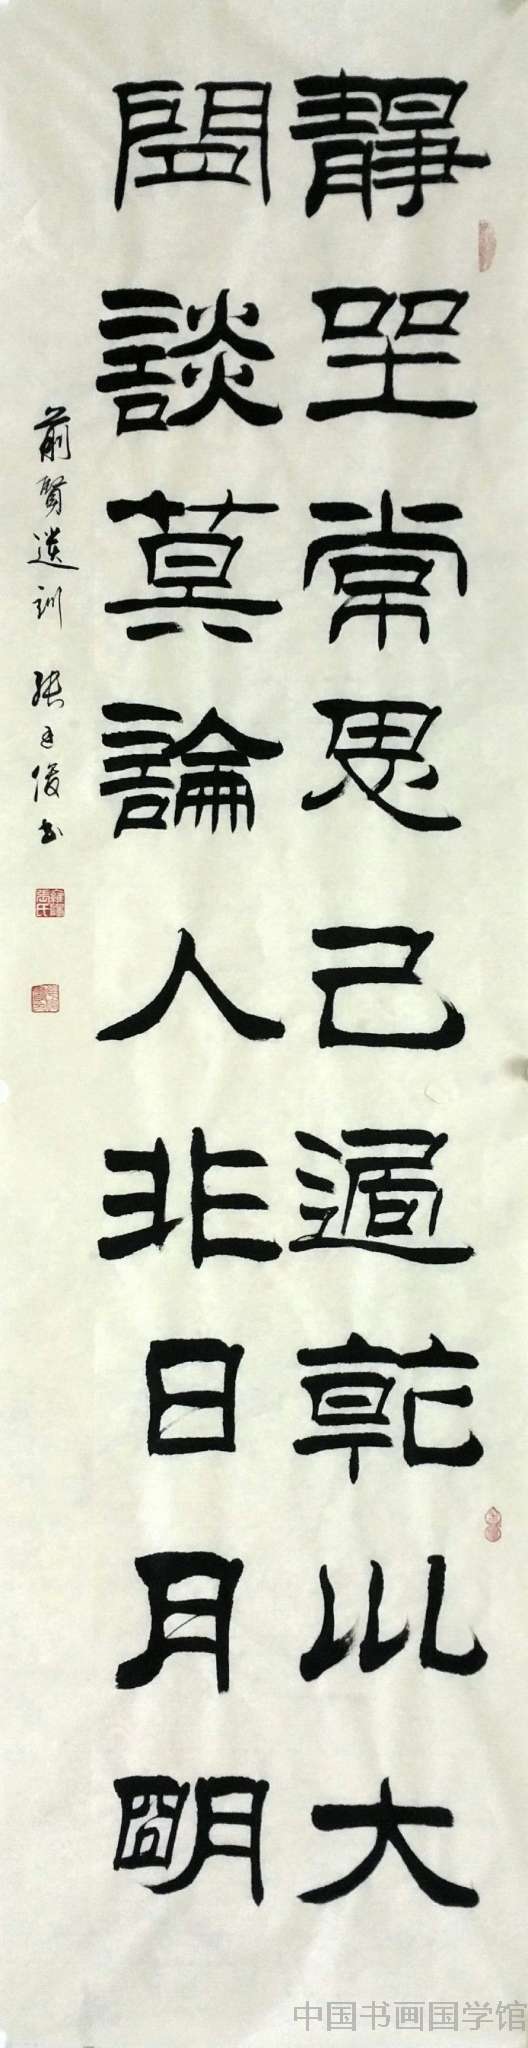 靜坐常思己過乾巛大
閒談莫論人非日月明
前賢遺訓 張廷俊书
中国书画国学馆